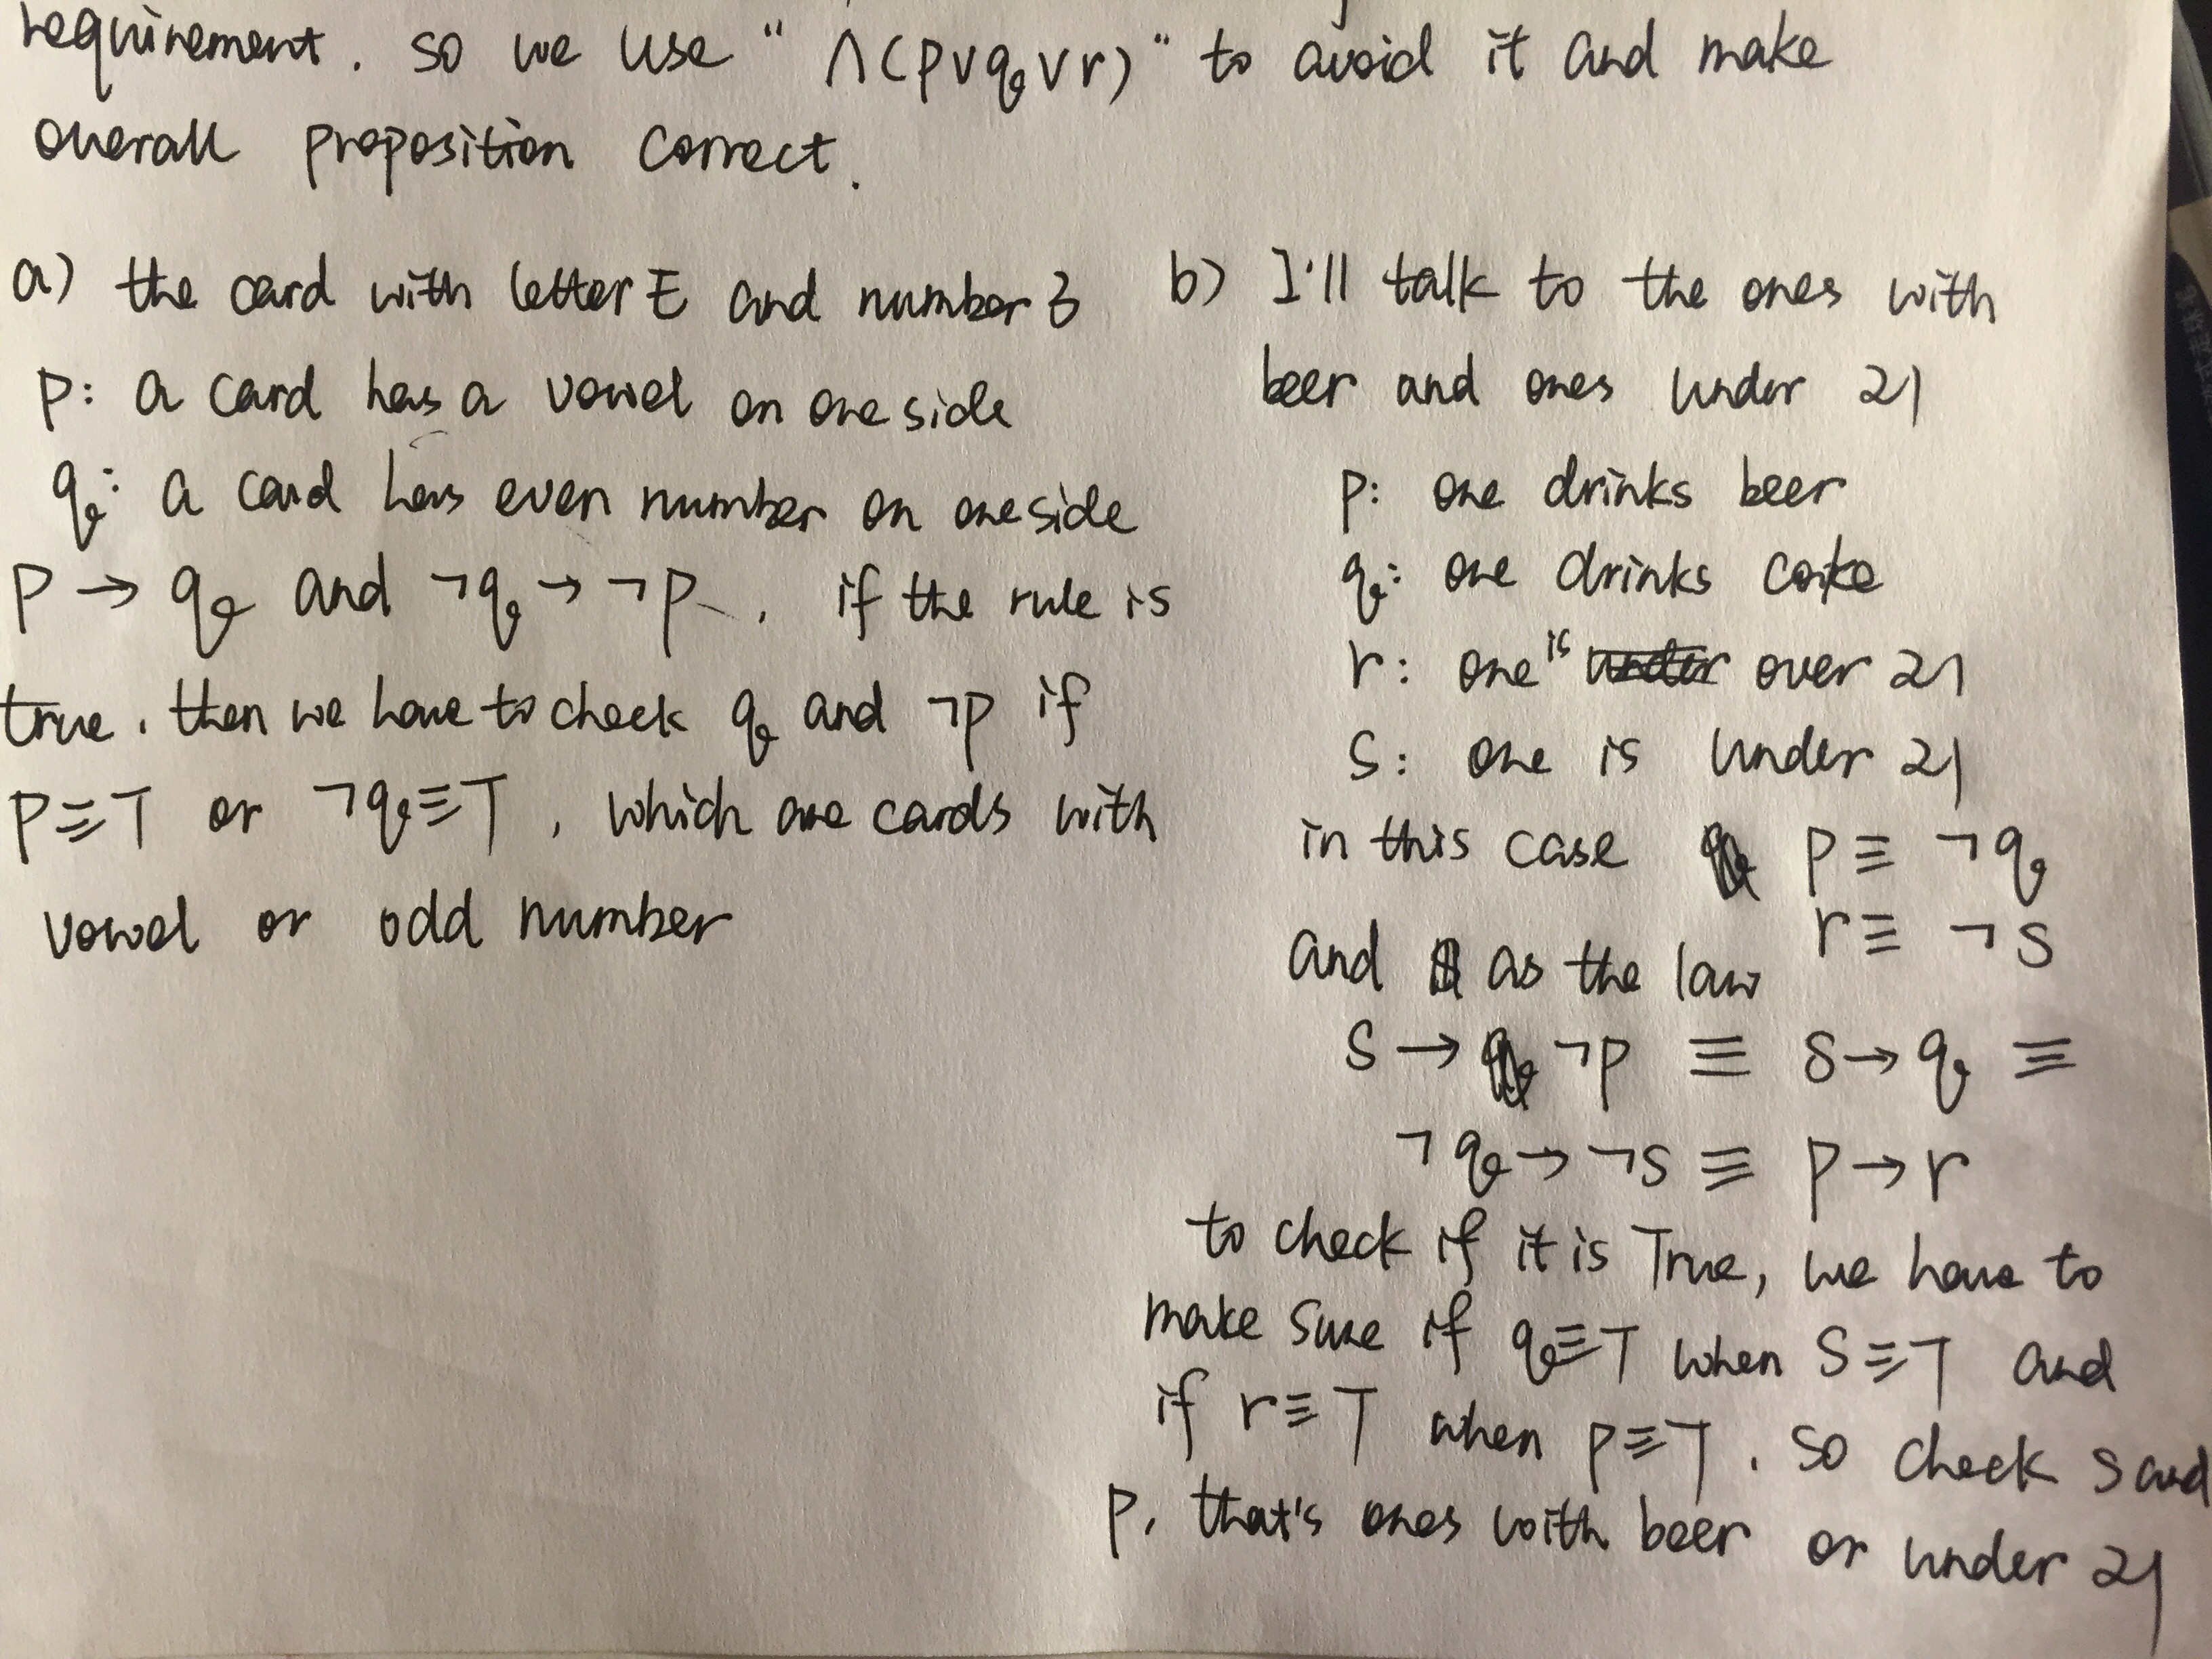 requirement. so we use "∧(p∨q∨r)" to avoid it and make
overall proposition correct.
a) the card with letter E and number 3
p: a card has a vowel on one side
q: a card has even number on one side
p → q and ¬q → ¬p, if the rule is
true, then we have to check q and ¬p if
p≡T or ¬q≡T, which are cards with
vowel or odd number
b) I'll talk to the ones with
beer and ones under 21
p: one drinks beer
q: one drinks coke
r: one is under over 21
s: one is under 21
in this case p ≡ ¬q
r ≡ ¬s
and as the law
s → ¬p ≡ s → q ≡
¬q → ¬s ≡ p → r
to check if it is True, we have to
make sure if q≡T when s≡T and
if r≡T when p≡T. so check s and
p, that's ones with beer or under 21